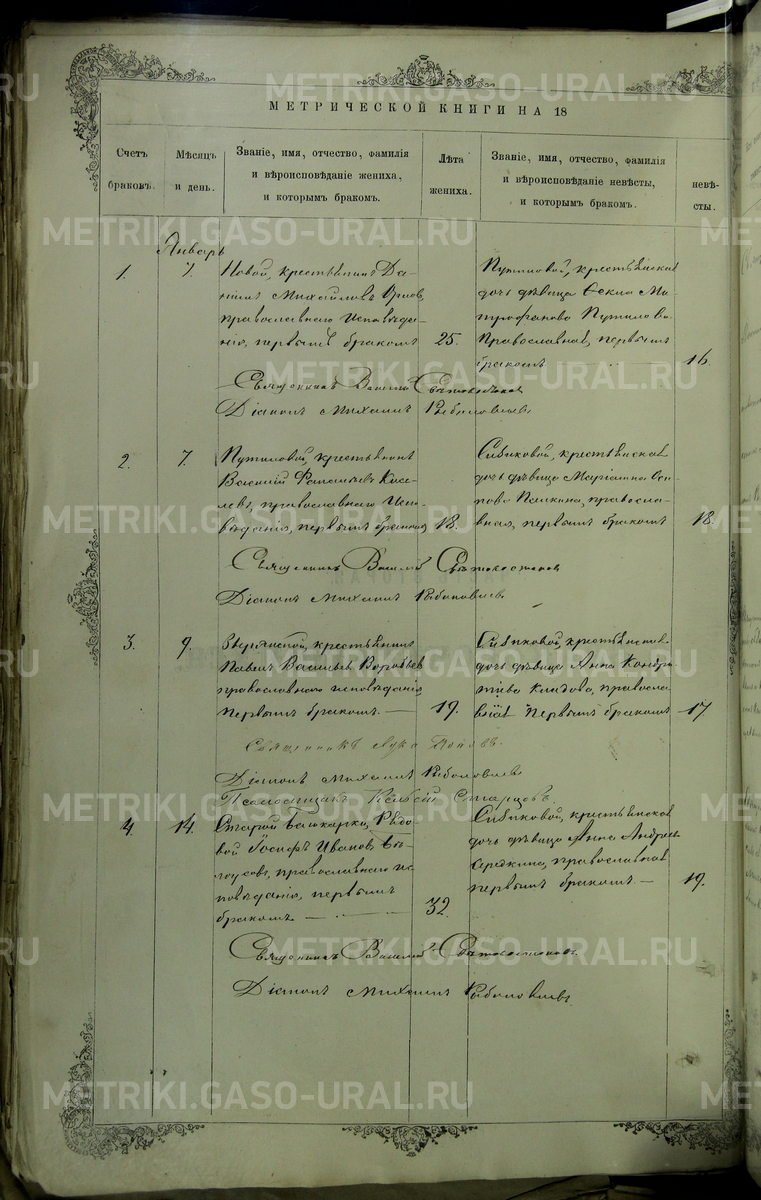 МЕТРИЧЕСКОЙ КНИГИ НА 18
Счетъ браковъ.
Мѣсяцъ и день.
Званіе, имя, отчество, фамилія
и вѣроисповѣданіе жениха,
и которымъ бракомъ.
Лѣта
жениха.
Званіе, имя, отчество, фамилія
и вѣроисповѣданіе невѣсты,
и которымъ бракомъ.
невѣ-
сты.
Январь
1.
7.
Новой, крестьянинъ Да-
ніилъ Михайловъ
православнаго исповѣда-
нія, первымъ бракомъ
25.
Путиловой, крестьянская
дочь дѣвица Ѳекла Ми-
трофанова Путилова
Православная, первымъ
бракомъ
16.
Священникъ Василій
Діаконъ Михаилъ
2.
7.
Путиловой, крестьянинъ
Василій Кисе-
левъ, православнаго Испо-
вѣданія, первымъ бракомъ
18.
крестьянская
дочь дѣвица Маріамна Оси-
пова православ-
ная, первымъ бракомъ
18.
Священникъ Василій
Діаконъ Михаилъ
3.
9.
крестьянинъ
Павелъ Васильевъ Воробьевъ
православнаго исповѣданія
первымъ бракомъ. —
19.
крестьянская
дочь дѣвица Анна Кондра-
тьева православ-
ная первымъ бракомъ
17.
Священникъ Лука Поповъ.
Діаконъ Михаилъ
Псаломщикъ Старцовъ.
4.
14.
Старой Башкарки, Рядо-
вой Іосифъ Ивановъ Бѣ-
лоусовъ, православнаго ис-
повѣданія, первымъ
бракомъ. —
32.
крестьянская
дочь дѣвица Анна Андреева
православная
первымъ бракомъ. —
19.
Священникъ Василій
Діаконъ Михаилъ
METRIKI.GASO-URAL.RU